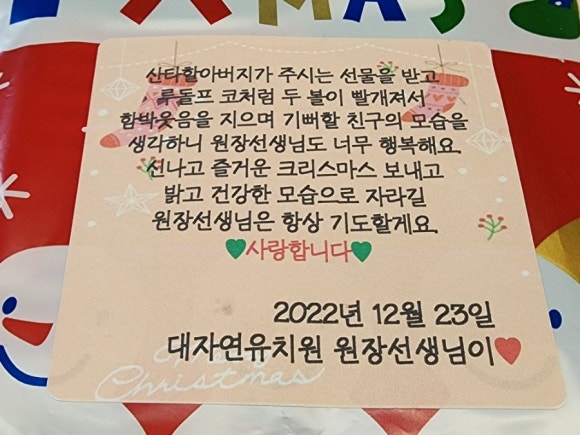 XMAS
산타할아버지가 주시는 선물을 받고
루돌프 코처럼 두 볼이 빨개져서
함박웃음을 지으며 기뻐할 친구의 모습을
생각하니 원장선생님도 너무 행복해요.
신나고 즐거운 크리스마스 보내고
밝고 건강한 모습으로 자라길
원장선생님은 항상 기도할게요.
♥사랑합니다♥
2022년 12월 23일
대자연유치원 원장선생님이♥
Merry
Christmas